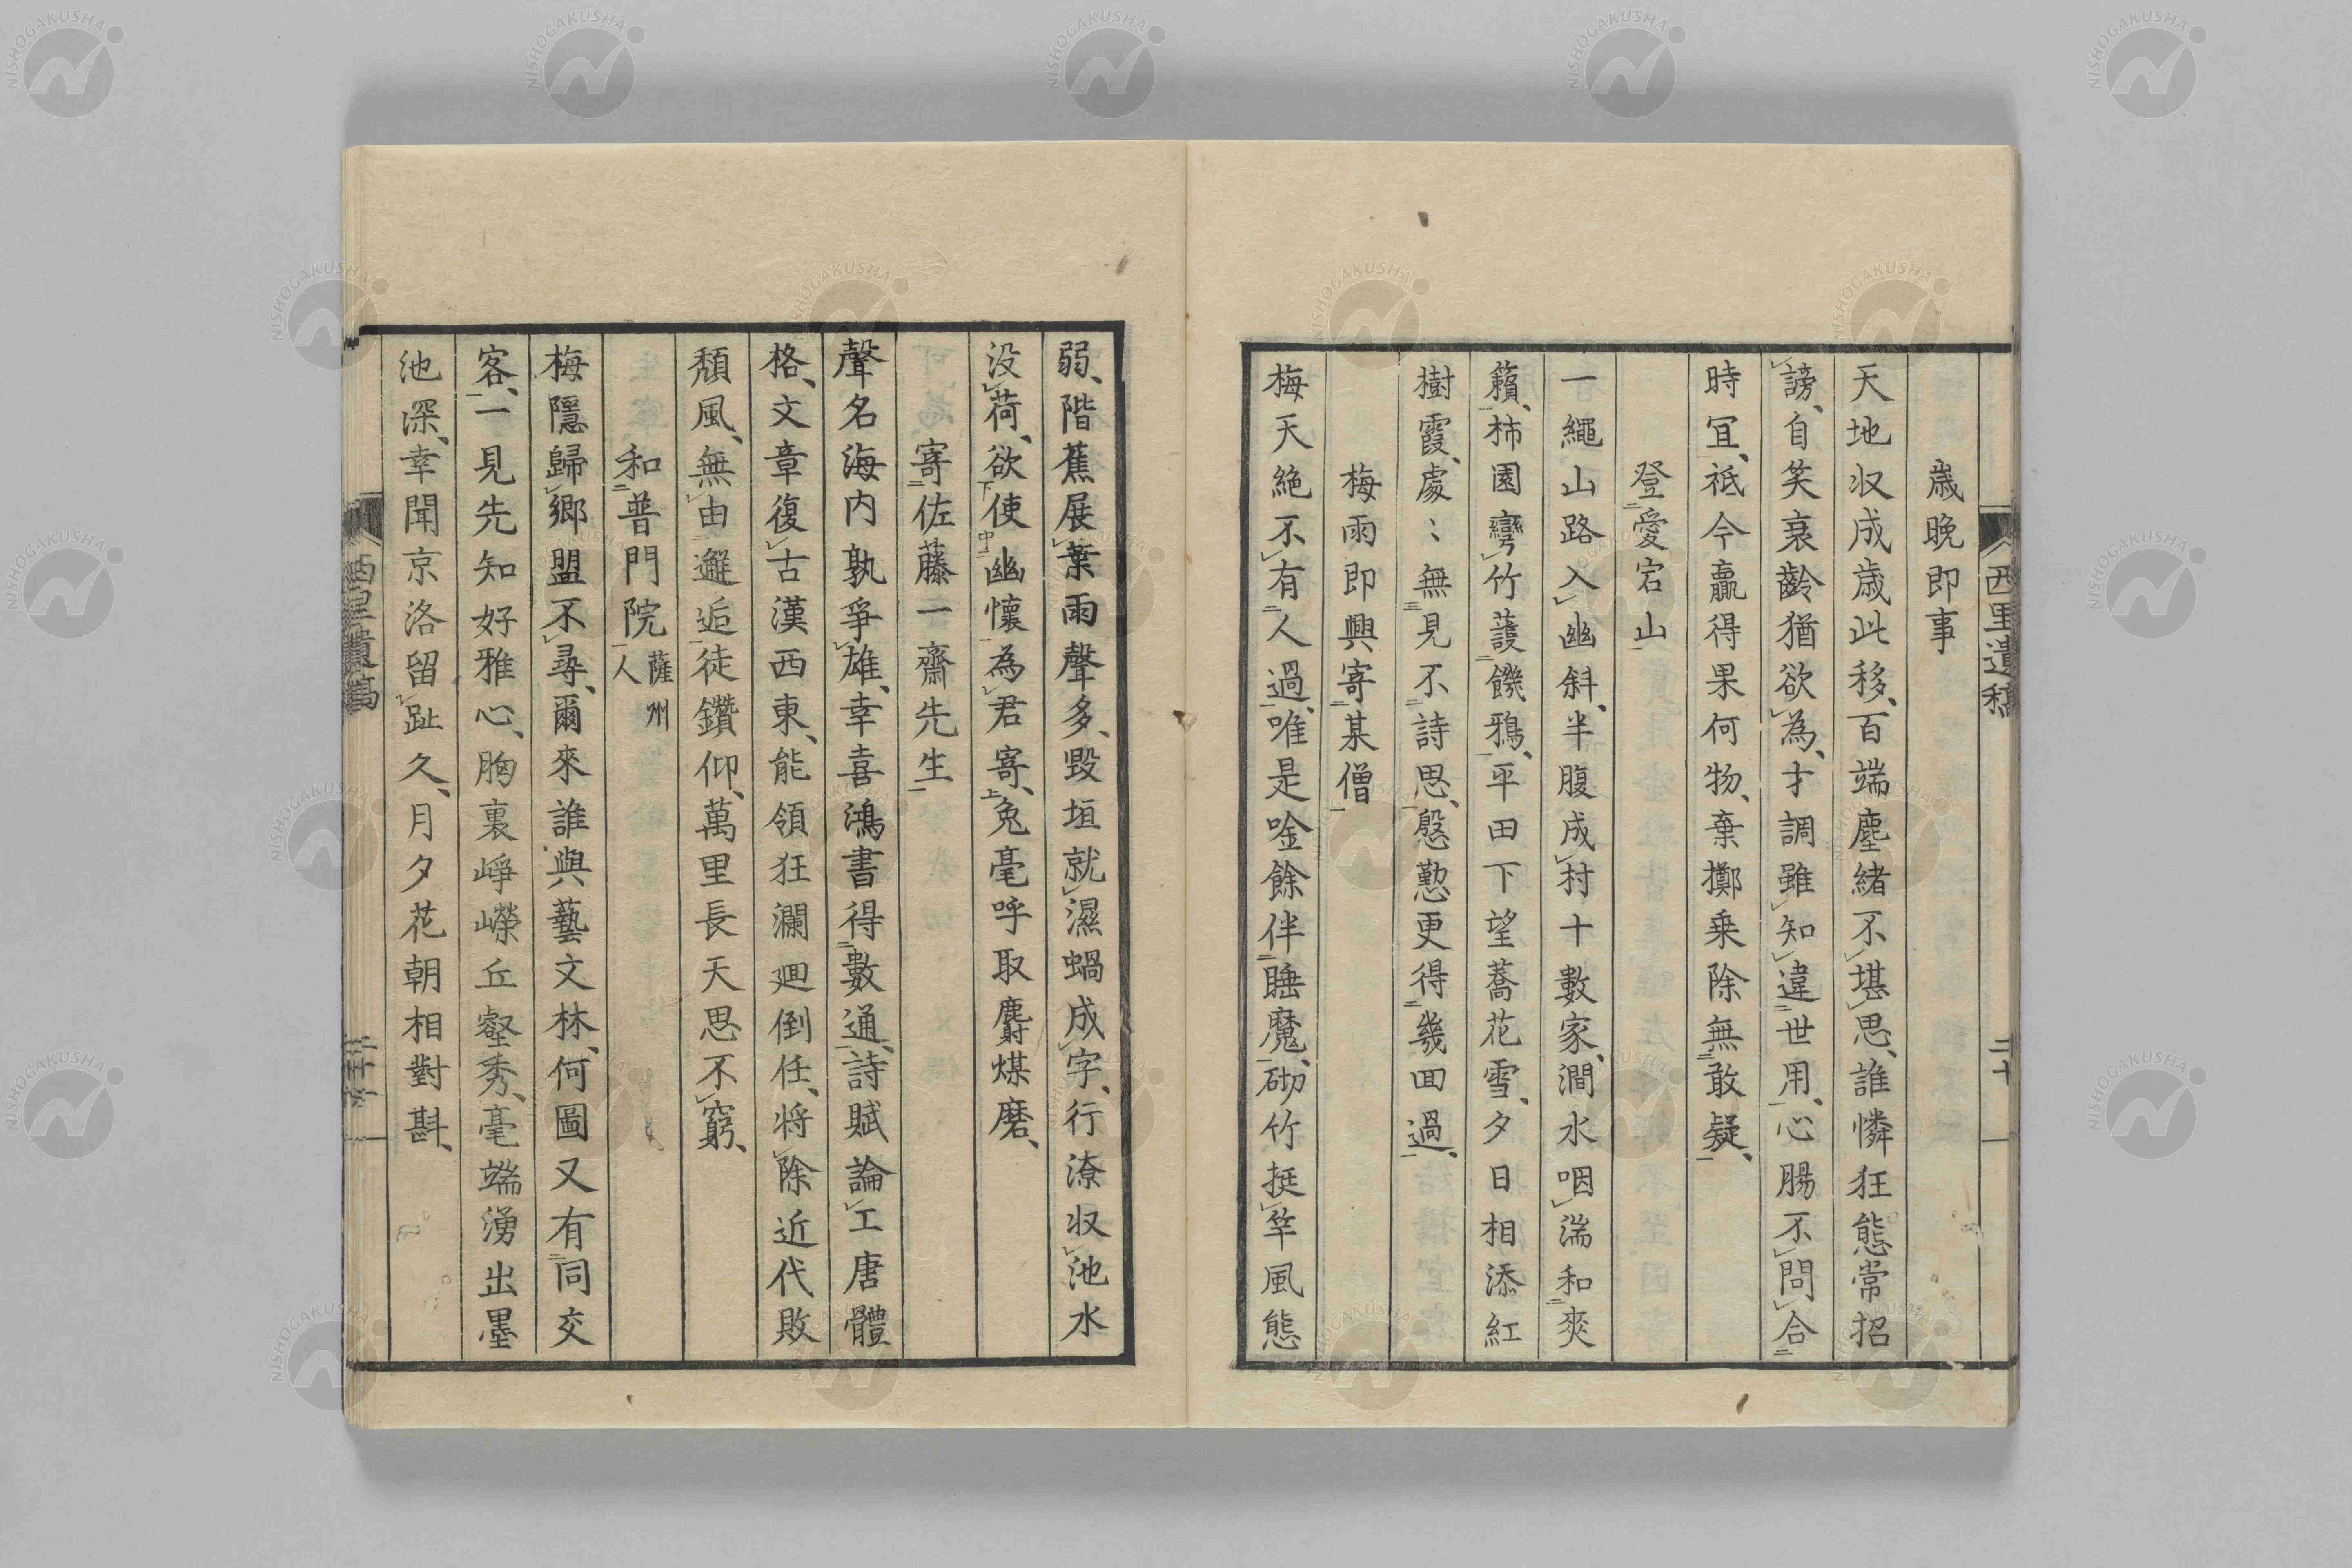 西里遺稿
二十
歳晩即事
天地収成歳此移、百端塵緒不レ堪レ思、誰憐狂態常招
レ謗、自笑衰齡猶欲レ為、才調雖レ知レ違二世用一、心腸不レ問レ合二
時冝一、祇今贏得果何物、棄擲乗除無二敢疑一、
登二愛宕山一
一繩山路入レ幽斜、半腹成レ村十數家、澗水咽レ湍和二爽
籟一、柿園彎レ竹護二饑鴉一、平田下望蕎花雪、夕日相添紅
樹霞、處〻無三見不二詩思一、慇懃更得二幾回過一、
梅雨即興寄二某僧一
梅天絶不レ有二人過一、唯是唫餘伴二睡魔一、砌竹挺レ竿風態
弱、階蕉展レ葉雨聲多、毀垣就レ濕蝸成レ字、行潦収レ池水
没レ荷、欲下使中幽懐一為レ君寄上、兔毫呼取麝煤磨、
寄二佐藤一齋先生一
聲名海内孰爭レ雄、幸喜鴻書得二數通一、詩賦論レ工唐體
格、文章復レ古漢西東、能領狂瀾廻倒任、将レ除近代敗
頽風、無レ由二邂逅一徒鑽仰、萬里長天思不レ窮、
和二普門院一 薩州人
梅隱歸レ鄉盟不レ尋、爾來誰與藝文林、何圖又有二同交
客一、一見先知好雅心、胸裏崢嶸丘壑秀、毫端湧出墨
池深、幸聞京洛留レ趾久、月夕花朝相對斟、
西里遺稿